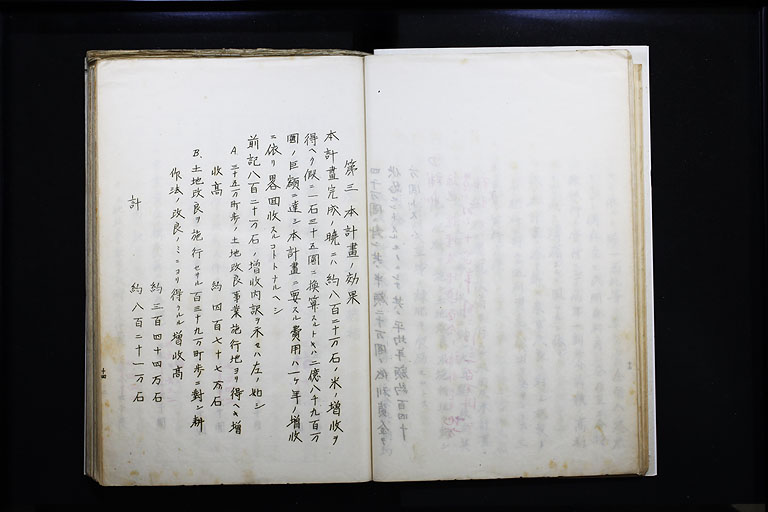 第三 本計畫ノ効果
本計畫完成ノ曉ニハ約八百二十万石ノ米ノ増收ヲ
得ヘク假ニ一石三十五圓ニ換算スルトキハ二億八千九百万
圓ノ巨額ニ達シ本計畫ニ要スル費用ハ一ケ年ノ増收
ニ依リ畧回收スルコトトナルヘシ
前記八百二十万石ノ増收内訳ヲ示セハ左ノ如シ
A 三十五万町歩ノ土地改良事業施行地ヨリ得ヘキ増
收高 約四百七十七万石
B. 土地改良ヲ施行セサル百三十九万町歩ニ對シ耕
作法ノ改良ノミニヨリ得ラルル増收高
約三百四十四万石
計 約八百二十一万石
十四